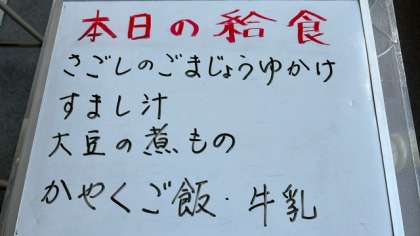 本日の給食
さごしのごまじょうゆかけ
すまし汁
大豆の煮もの
かやくご飯・牛乳